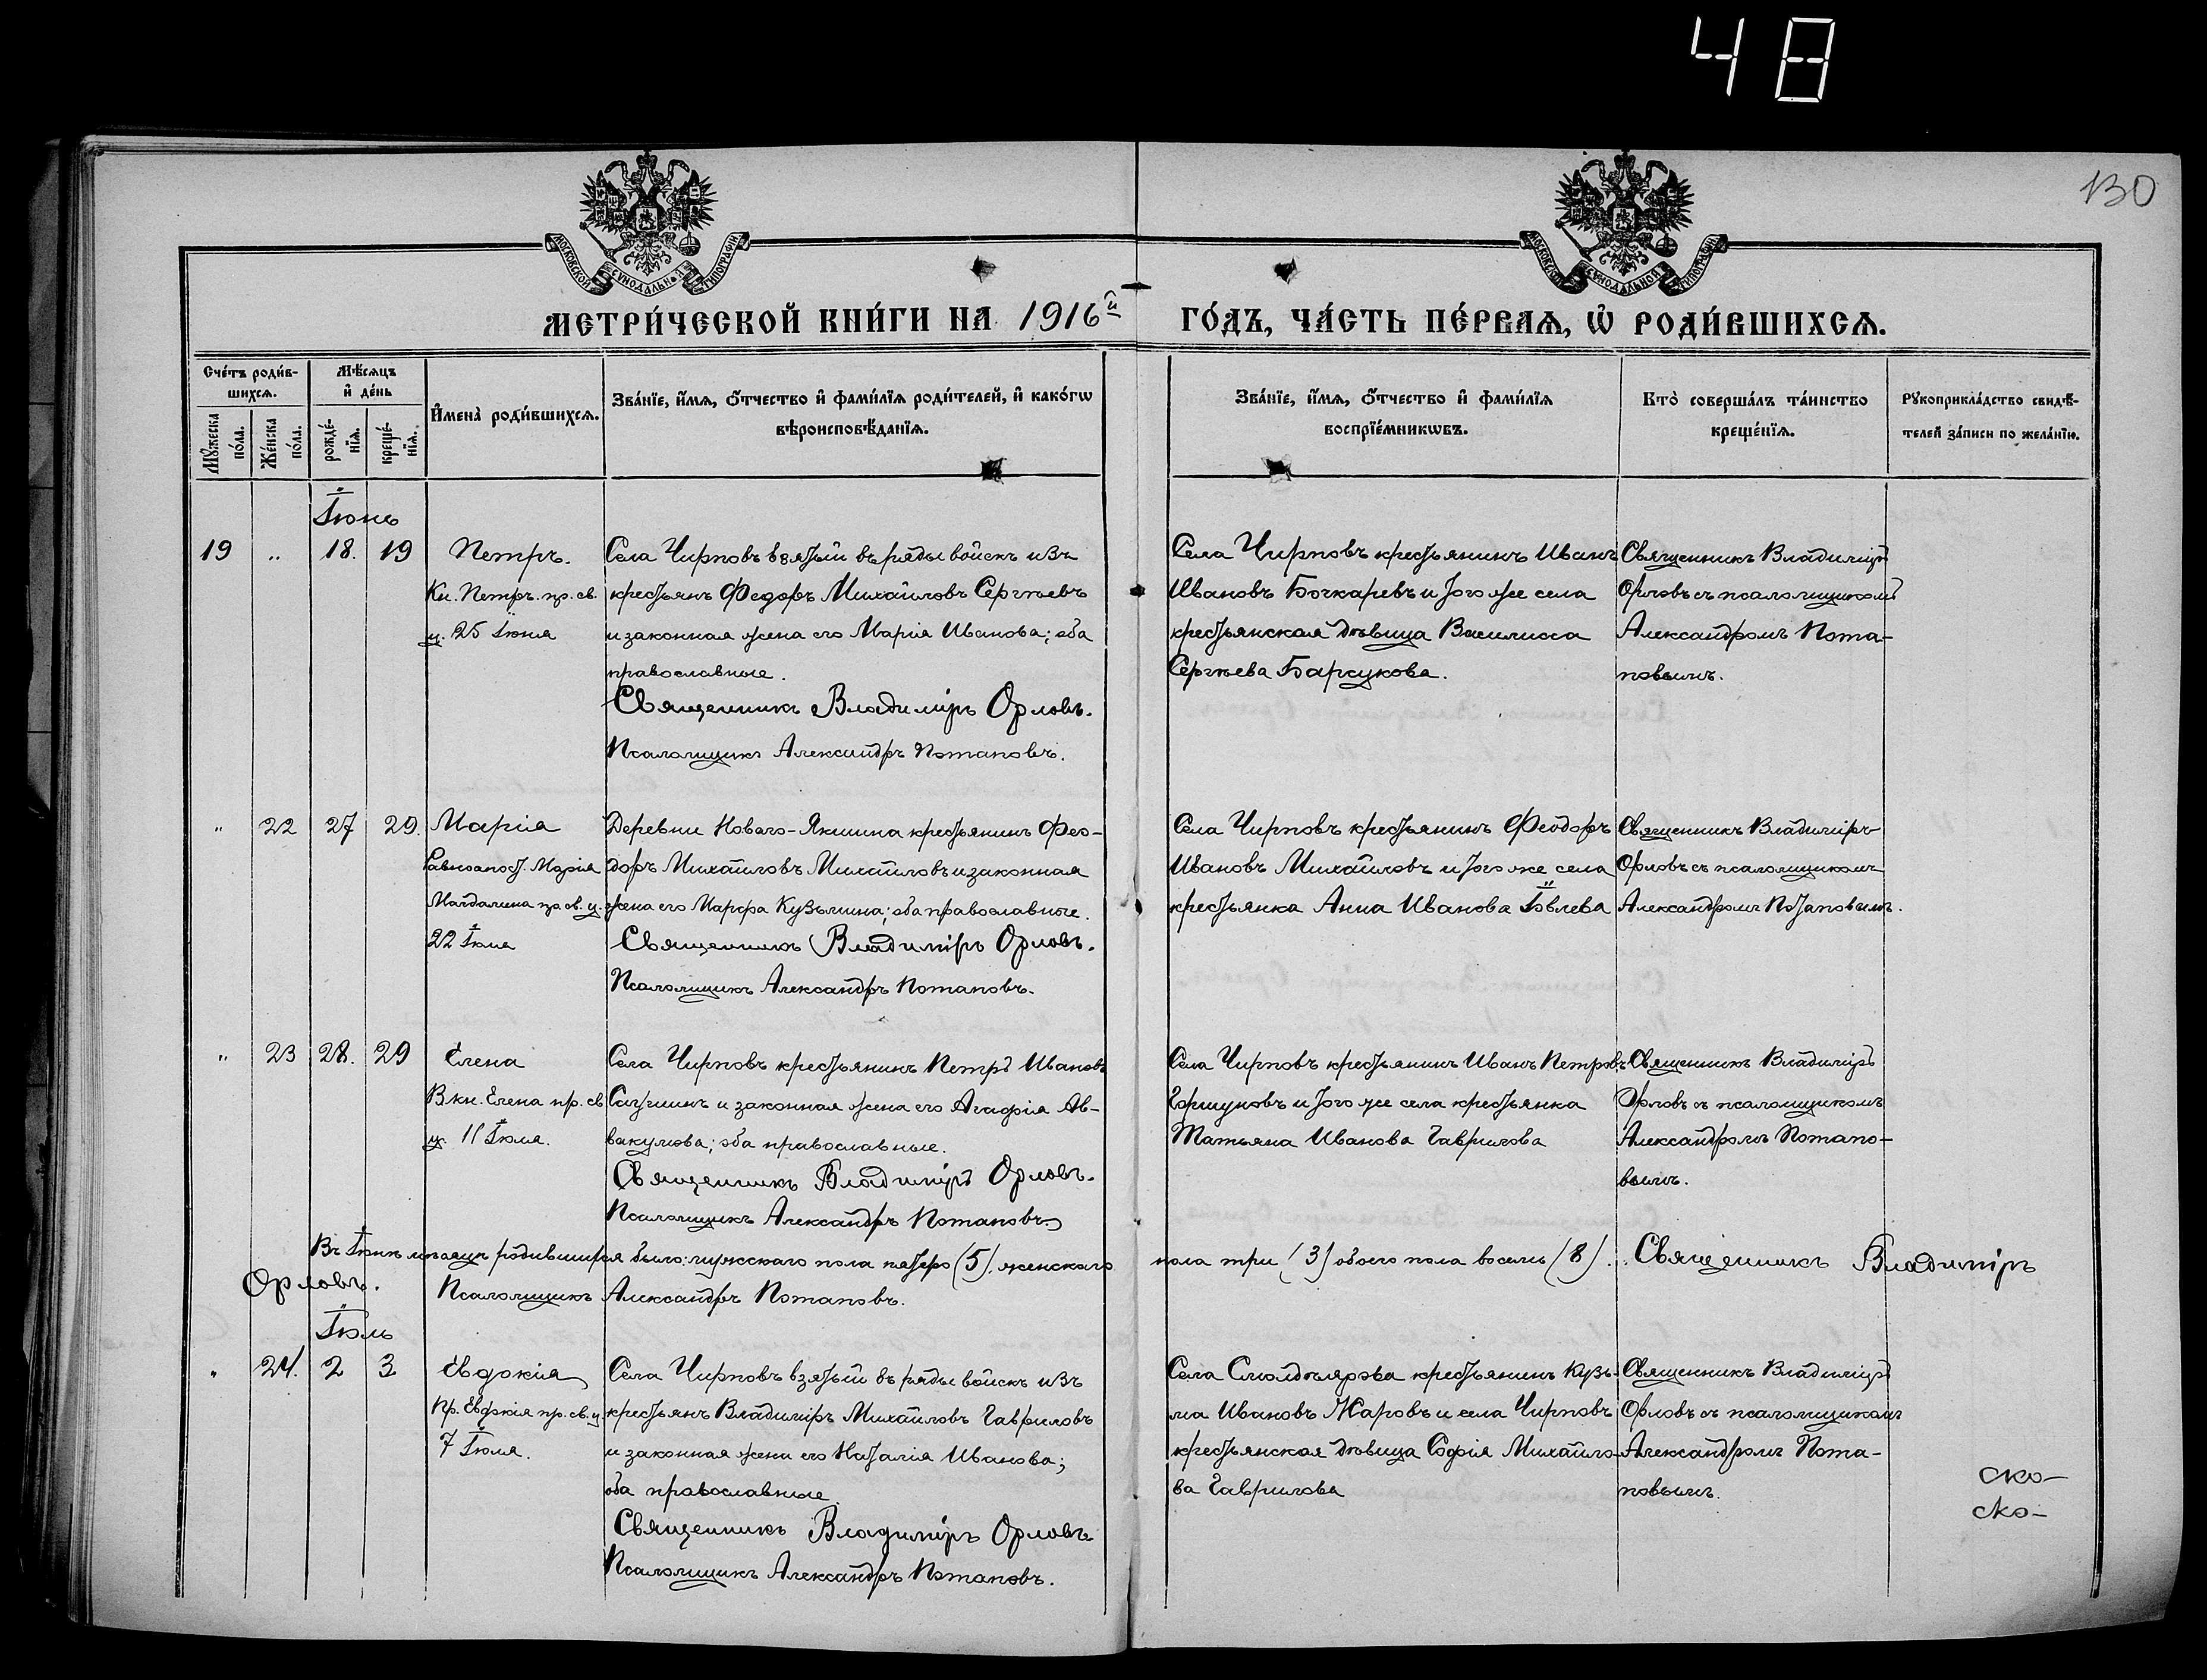 48
130
МОСКОВСКОЙ СѴНОДАЛЬНОЙ ТИПОГРАФІИ
МОСКОВСКОЙ СѴНОДАЛЬНОЙ ТИПОГРАФІИ
МЕТРИ́ЧЕСКОЙ КНИ́ГИ НА 1916й ГО́ДЪ, ЧА́СТЬ ПЕ́РВАѦ, Ѡ҆ РОДИ́ВШИХСѦ.
Сче́тъ роди́в-
шихсѧ.
Мꙋ́жеска по́ла.
Же́нска по́ла.
Мѣ́сѧцъ
и҆ де́нь
рожде́-
нїѧ.
креще́-
нїѧ.
И҆мена̀ роди́вшихсѧ.
Зва́нїе, и҆́мѧ, ѻ҆́тчество и҆ фами́лїѧ роди́телей, и҆ како́гѡ
вѣроисповѣ́данїѧ.
Зва́нїе, и҆́мѧ, ѻ҆́тчество и҆ фами́лїѧ
воспрїе́мникѡвъ.
Кто̀ соверша́лъ та́инство
креще́нїѧ.
Рꙋкоприкла́дство свидѣ́-
телей за́писи по жела́нїю.
Іюнь
19 " 18. 19 Петръ.
Кн. Петръ. пр. св.
ц. 25 Іюня
Села Чирповъ взятый въ ряды войскъ изъ
крестьянъ Федоръ Михайловъ Сергѣевъ
и законная жена его Марія Иванова; оба
православные.
Священникъ Владиміръ Орловъ.
Псаломщикъ Александръ Потаповъ.
Села Чирповъ крестьянинъ Иванъ
Ивановъ Бочкаревъ и того же села
крестьянская дѣвица Василисса
Сергѣева Барсукова.
Священникъ Владиміръ
Орловъ съ псаломщикомъ
Александромъ Пота-
повымъ.
" 22 27 29. Марія
Равноапост. Марія
Магдалина пр. св. ц.
22 Іюля
Деревни Новаго-Якшина крестьянинъ Фео-
доръ Михайловъ Михайловъ и законная
жена его Марфа Кузьмина; оба православные.
Священникъ Владиміръ Орловъ.
Псаломщикъ Александръ Потаповъ.
Села Чирповъ крестьянинъ Феодоръ
Ивановъ Михайловъ и того же села
крестьянка Анна Иванова Іовлева
Священникъ Владиміръ
Орловъ съ псаломщикомъ
Александромъ Потаповымъ.
" 23 28. 29 Елена
В. кн. Елена пр. св.
ц. 11 Іюля.
Села Чирповъ крестьянинъ Петръ Ивановъ
и законная жена его Агафія Ав-
вакумова; оба православные.
Священникъ Владиміръ Орловъ.
Псаломщикъ Александръ Потаповъ.
Села Чирповъ крестьянинъ Иванъ Петровъ
Горшуновъ и того же села крестьянка
Татьяна Иванова Гаврилова
Священникъ Владиміръ
Орловъ съ псаломщикомъ
Александромъ Потапо-
вымъ.
Въ Іюнѣ мѣсяцѣ родившихся было: мужскаго пола пятеро (5), женскаго пола три (3) обоего пола восемь (8). Священникъ Владиміръ
Орловъ. Псаломщикъ Александръ Потаповъ.
Іюль
" 24. 2 3 Евдокія
Пр. Евдокія пр. св. ц.
7 Іюля.
Села Чирповъ взятый въ ряды войскъ изъ
крестьянъ Владиміръ Михайловъ Гавриловъ
и законная жена его Наталія Иванова;
оба православные
Священникъ Владиміръ Орловъ
Псаломщикъ Александръ Потаповъ.
Села Смолдеярова крестьянинъ Кузь-
ма Ивановъ Жаровъ и села Чирповъ
крестьянская дѣвица Софія Михайло-
ва Гаврилова
Священникъ Владиміръ
Орловъ съ псаломщикомъ
Александромъ Пота-
повымъ.
ско-
ско-